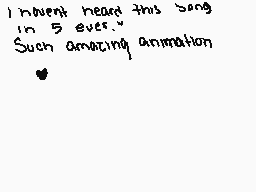 I havent heard this song
in 5 ever."
Such amazing animation
♥